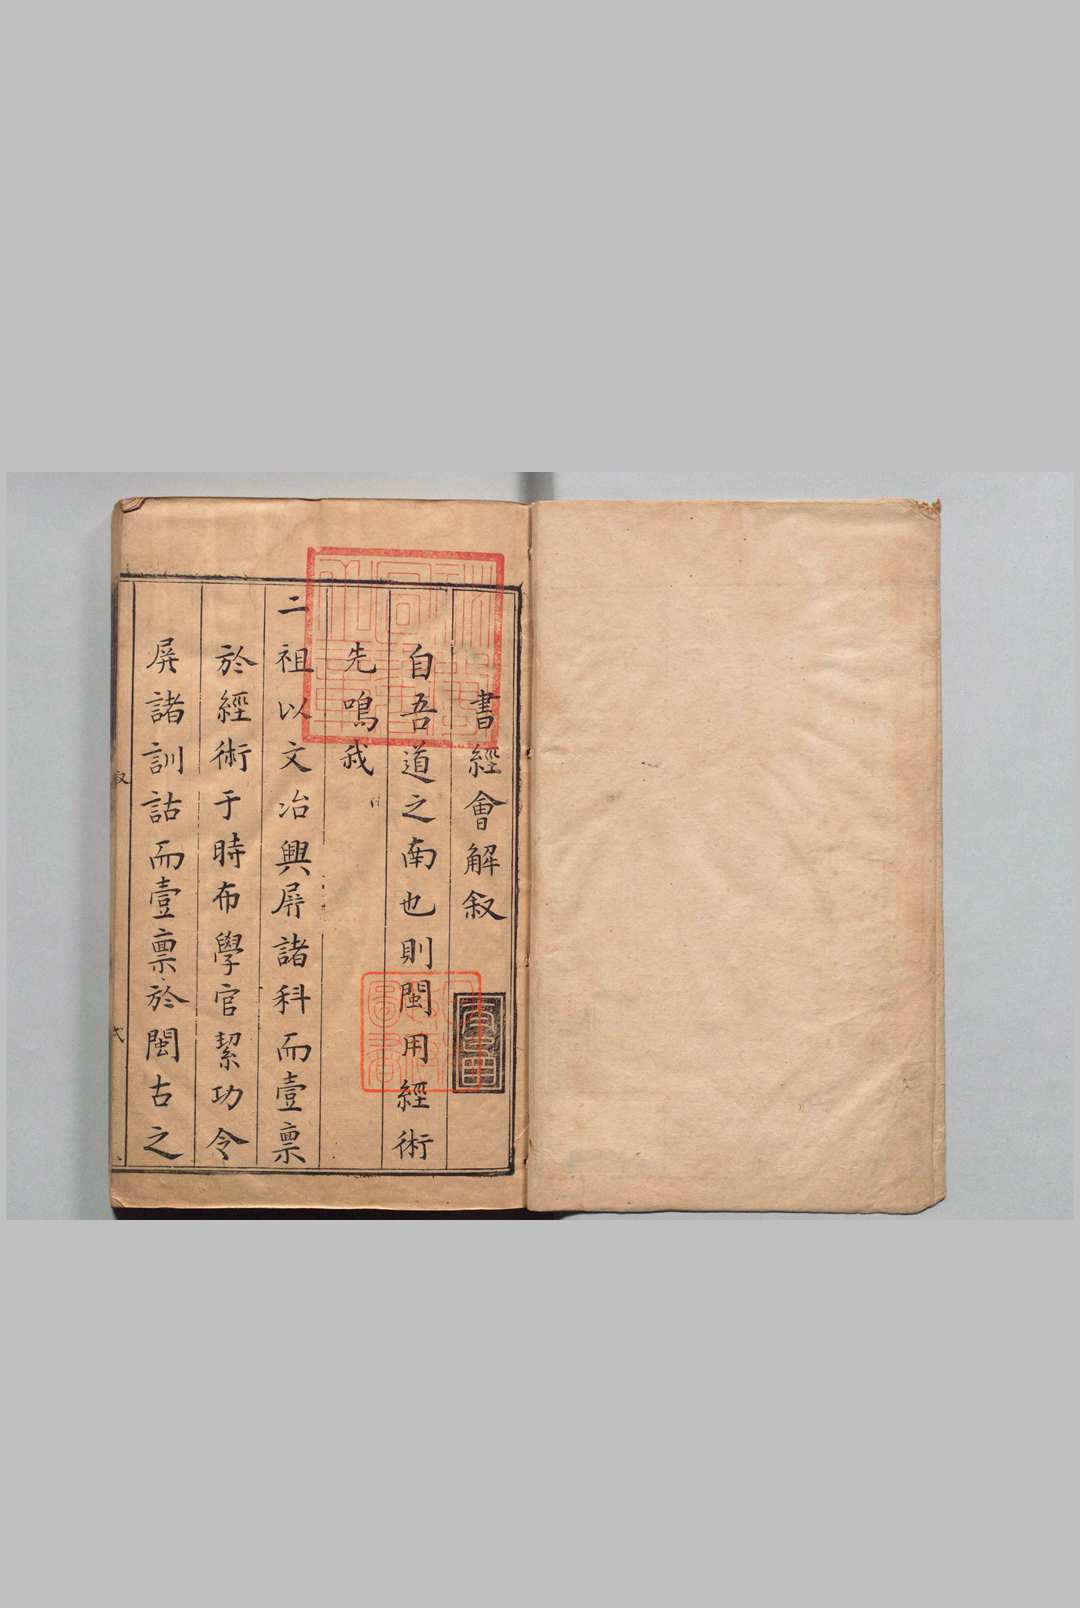 書經會解叙
自吾道之南也則閩用經術
先鳴我
二祖以文冶興屏諸科而壹禀
於經術于時布學官絜功令
屏諸訓詁而壹禀於閩古之
叙